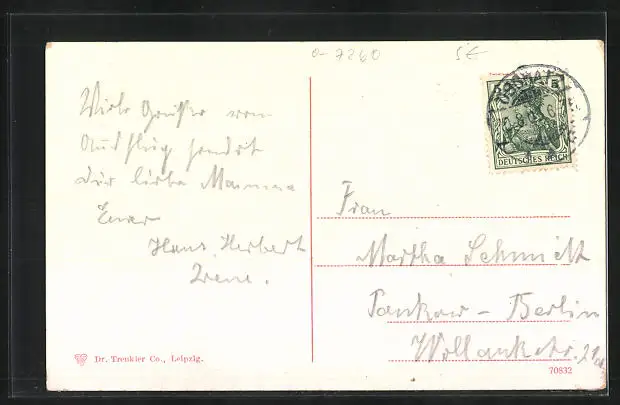 o-7260
5€
Viele Grüsse vom
Ausflug sendet
Dir liebe Mamma
Euer
Hans, Herbert
Irene.
5
DEUTSCHES REICH
Frau
Martha Schmidt
Pankow – Berlin
Wollankstr. 21a
Dr. Trenkler Co., Leipzig.
70832